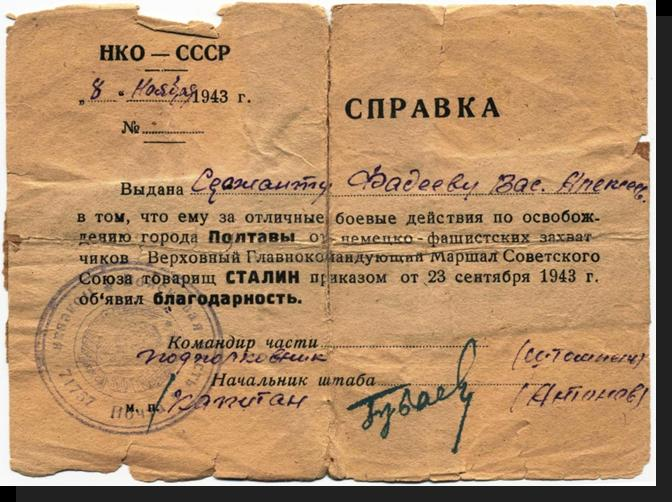 НКО — СССР
„8“ Ноября 1943 г.
№
СПРАВКА
Выдана Сержанту Фадееву Вас. Алексеев.
в том, что ему за отличные боевые действия по освобож-
дению города Полтавы от немецко-фашистских захват
чиков Верховный Главнокомандующий Маршал Советского
Союза товарищ СТАЛИН приказом от 23 сентября 1943 г.
об'явил благодарность.
Командир части
подполковник
Начальник штаба
м. п. Капитан (Антонов)
71757